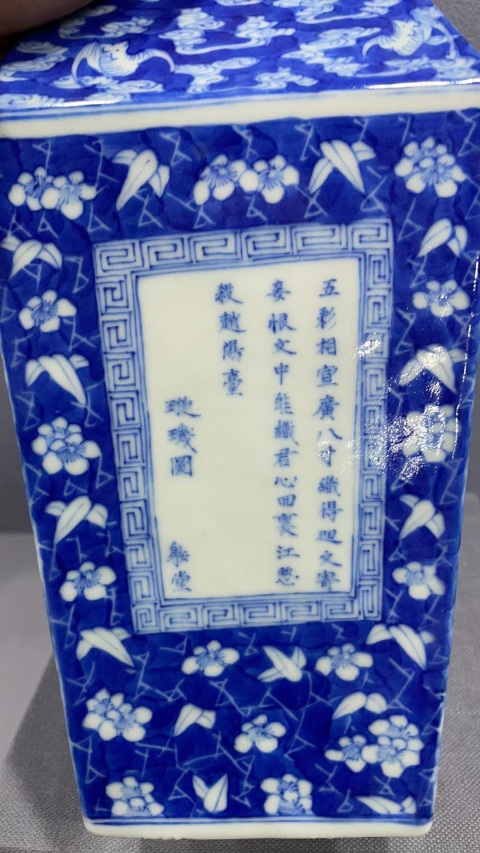 五彩相宣廣八寸織得迴文寄
妾恨文中能織君心回襄江愁
殺趙陽臺
璇璣圖
堂